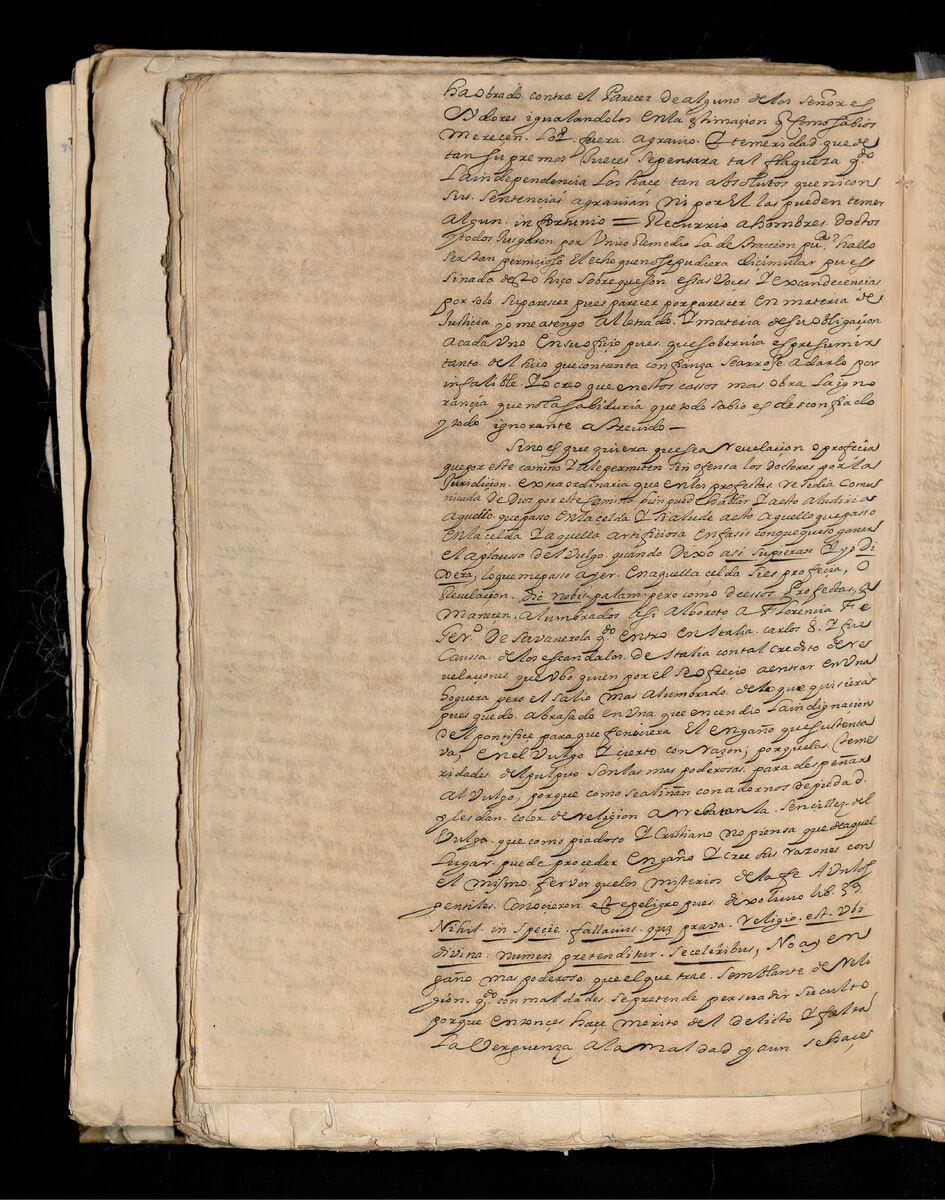 ha obrado. contra el Parecer de alguno delos señores
Oydores igualandolos enla estimacion q̃ como sabios
merecen. fuera. agravio. y temeridad. que de
tan supremos Jueces se pensara tal flaqueza q.do
La independencia los hace tan absolutos que ni con
sus. sentencias agravian ni por El las pueden temer
algun. infortunio = Recurrio a hombres. doctos
y todos Jusgaron por Unico Remedio la destraccion pu.ca hallo
ser tan pernicioso El echo que no se pudiera dicimular pues
si nada de esto hiço sobre que son. essas Voces y excandecencias
por solo su pareser pues parecer por pareser en materia de
Justicia yo me atengo al letrado. y materia de su obligacion
a cada Uno en su oficio pues. que sobervia es presumir
tanto. del Juicio que con tanta confianza se arroje a darlo por
infalible. yo creo que en estos cassos mas obra. la igno
rancia que no la sabiduria que todo sabio es desconfiado
y todo ignorante atrevido —
Sino es que quiera que sea Revelacion o profecia
que por este camino se le permiten sin ofensa los doctores por la
Jurisdicion. extraordinaria que en los profetas. residia comu
nicada de Dios por este camino bien pudo hablar y a esto aludiria
aquello que paso en la celda y si alude a esto aquello que paso
en la celda y aquella artificiosa enfasis con que quiso ganar
el aplauso del Vulgo quando Dixo asi supieran y yo Di
xera, lo que me paso ayer. en aquella celda si es profecia, O
Revelacion. Dic nobis. palam. pero como de essos Profetas,
Manecen. Alumbrados asi alboroto a Florencia F. Ge
Ger.o De Savanerola q.do entro en Italia. carlos 8. y fue
Caussa. de los escandalos. de Italia con tal credito de re
velaciones que Ubo quien por el se ofrecio a entrar en Una
hoguera pero el salio mas alumbrado. de lo que quisiera
pues quedo. abrasado en Una que encendio la indignacion
del pontifice para que feneciera El engaño que sustenta
va, en el Vulgo y cierto con razon; porque las teme
ridades. del pulpito son las mas poderosas. para despeñar
al Vulgo, porque como se aliñan con adornos de piedad.
y les dan. color de religion arrebatan la. sencillez. del
Vulgo. que como piadoso y Cristiano no piensa que de aquel
Lugar. puede proceder engaño y cree sus razones con
el mismo. fervor que los misterios de la fe Aun los
gentiles. Conocieron este peligro pues. dixo Livio lib. 39.
Nihil. in specie. fallacius. quã prava. religio. est. Ubi
divina. numen pretenditur. seceleribus, No ay en
gaño mas poderoso. que el que trae. semblante de reli
gion. q.do con maldades. se pretende persuadir su culto
porque entonçes hace merito del delicto y falta
La Verguenza a la maldad y aun se haçe